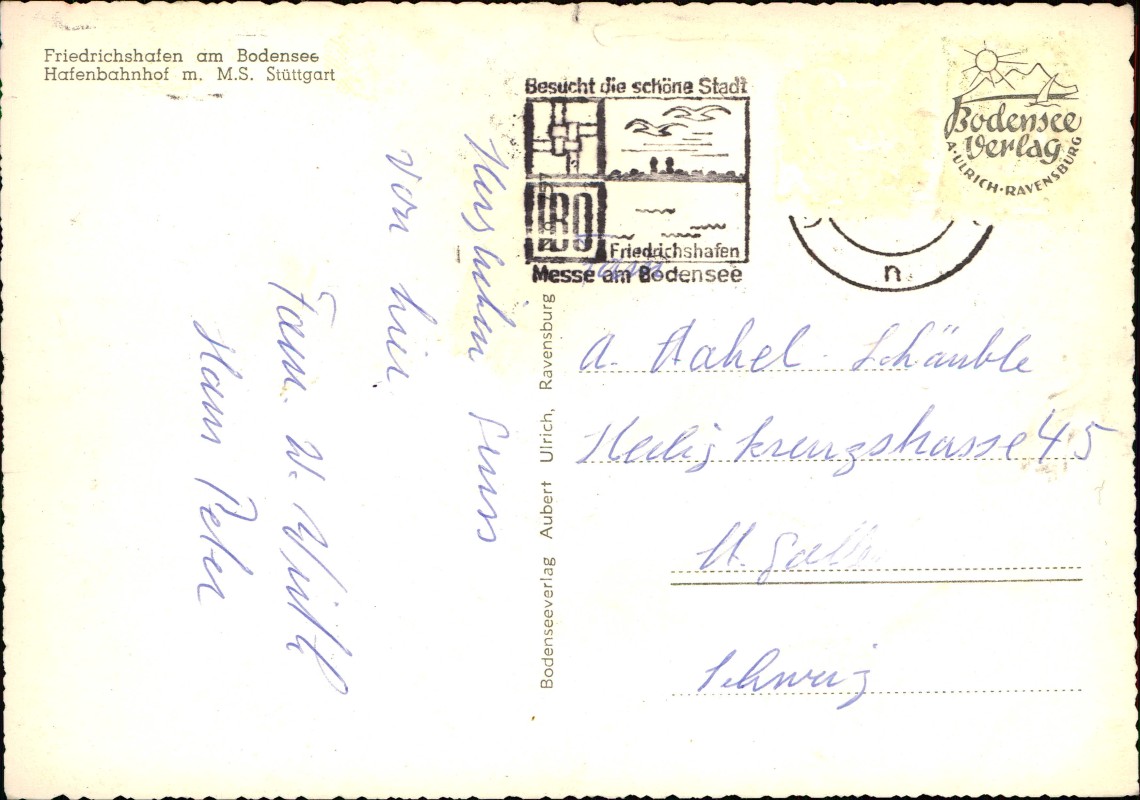 Friedrichshafen am Bodensee
Hafenbahnhof m. M.S. Stüttgart
Besucht die schöne Stadt
IBO
Friedrichshafen
Messe am Bodensee
n
Bodensee
Verlag
A. ULRICH · RAVENSBURG
Herzlichen Gruss
von hier
Fam. W.
Hans Peter
Bodenseeverlag Aubert Ulrich, Ravensburg
A. Schäuble
Heiligkreuzstrasse 45
St. Gallen
Schweiz